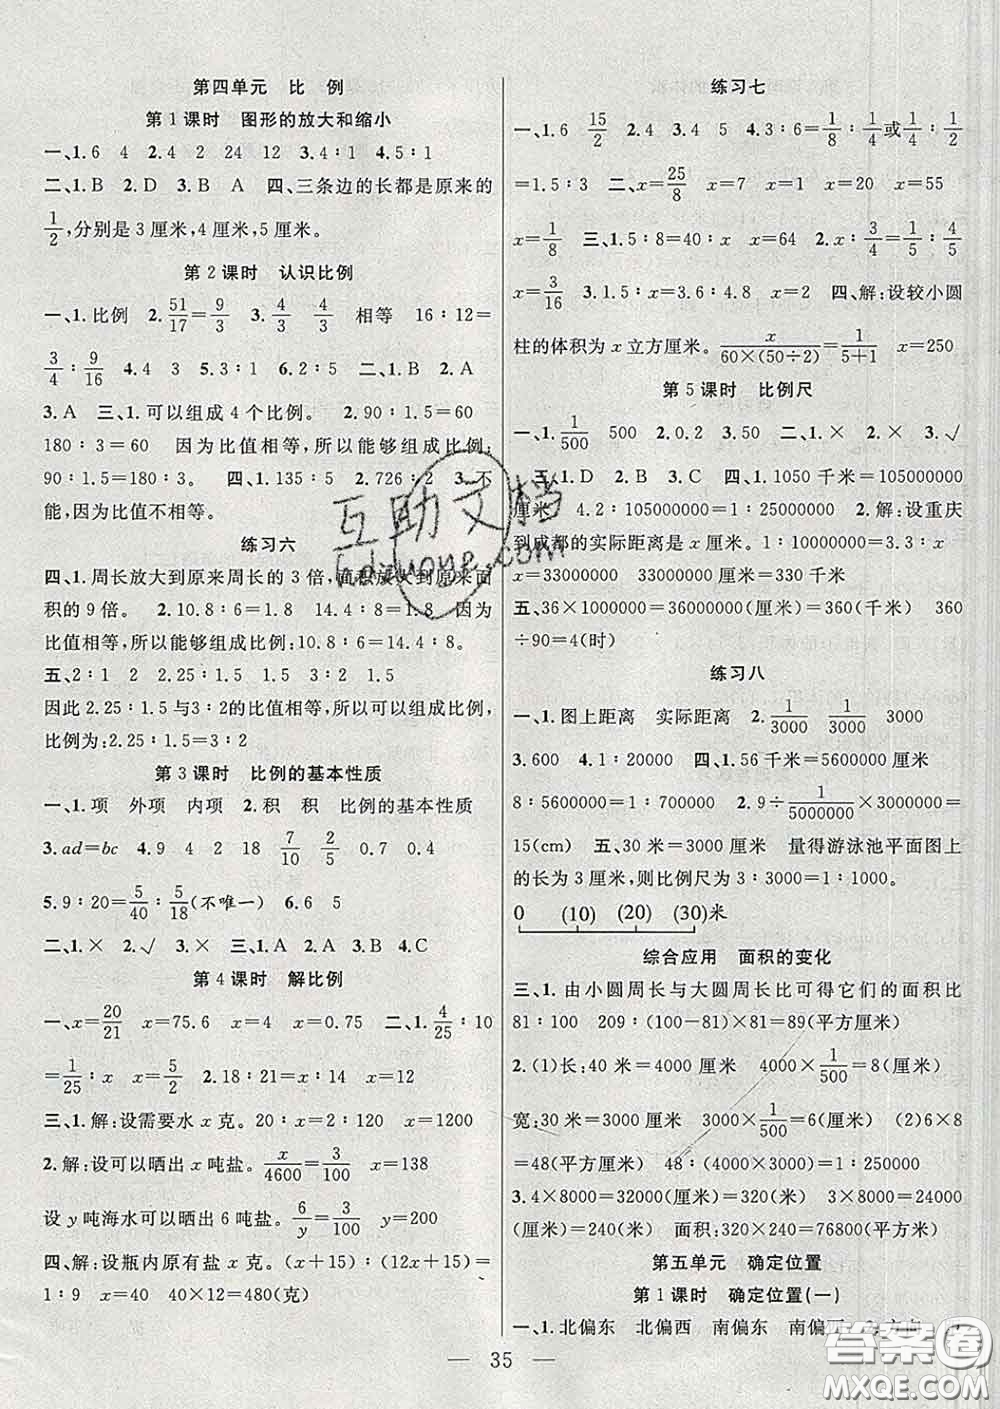 第四单元 比 例
第1课时 图形的放大和缩小
一、1.6 4 2.4 2 24 12 3.4∶1 4.5∶1
二、1.B 2.D 3.B A 四、三条边的长都是原来的
1/2,分别是3厘米,4厘米,5厘米。
第2课时 认识比例
一、1.比例 2.51/17=9/3 3.4/3 4/3 相等 16∶12=
3/4∶9/16 4.4 3 5.3∶1 二、1.B 2.A
3.A 三、1.可以组成4个比例。 2.90∶1.5=60
180∶3=60 因为比值相等,所以能够组成比例:
90∶1.5=180∶3 四、1.135∶5 2.726∶2 3.不
能,因为比值不相等。
练习六
四、1.周长放大到原来周长的3倍,面积放大到原来面
积的9倍。 2.10.8∶6=1.8 14.4∶8=1.8 因为
比值相等,所以能够组成比例:10.8∶6=14.4∶8。
五、2∶1 2 2.25∶1.5 1.5 3∶2 1.5
因此2.25∶1.5与3∶2的比值相等,所以可以组成比例,
比例为:2.25∶1.5=3∶2
第3课时 比例的基本性质
一、1.项 外项 内项 2.积 积 比例的基本性质
3.ad=bc 4.9 4 2 18 7/10 2/5 0.7 0.4
5.9∶20=5/40∶5/18(不唯一) 6.6 5
二、1.× 2.√ 3.× 三、1.A 2.A 3.B 4.C
第4课时 解比例
一、x=20/21 x=75.6 x=4 x=0.75 二、1.4/25∶10
=1/25∶x x=5/2 2.18∶21=14∶x x=12
三、1.解:设需要水x克。20∶x=2∶120 x=1200
2.解:设可以晒出x吨盐。x/4600=3/100 x=138
设y吨海水可以晒出6吨盐。6/y=3/100 y=200
四、解:设瓶内原有盐x克。(x+15)∶(12x+15)=
1∶9 x=40 40×12=480(克)
练习七
一、1.6 15/2 2.4 4 5 4.3∶6=1/8∶1/4或1/4∶1/2
=1.5∶3 二、x=25/8 x=7 x=1 x=20 x=55
x=1/8 三、1.5∶8=40∶x x=64 2.x∶3/4=1/5∶4/5
x=3/16 3.1.5∶x=3.6∶4.8 x=2 四、解:设较小圆
柱的体积为x立方厘米。x/60×(50÷2)=1/5+1 x=250
第5课时 比例尺
一、1.1/500 500 2.0.2 3.50 二、1.× 2.× 3.√
三、1.D 2.B 3.C 四、1.1050千米=105000000
厘米 4.2∶105000000=1∶25000000 2.解:设重庆
到成都的实际距离是x厘米。1∶10000000=3.3∶x
x=33000000 33000000厘米=330千米
五、36×1000000=36000000(厘米)=360(千米) 360
÷90=4(时)
练习八
一、1.图上距离 实际距离 2.1/3000 1/3000 3000
3.600 4.1∶20000 四、1.56千米=5600000厘米
8∶5600000=1∶700000 2.9÷1/5000000×1/3000000=
15(cm) 五、30米=3000厘米 量得游泳池平面图上
的长为3厘米,则比例尺为3∶3000=1∶1000。
0 (10) (20) (30)米
综合应用 面积的变化
三、1.由小圆周长与大圆周长比可得它们的面积比
81∶100 209∶(100-81)×81=89(平方厘米)
2.(1)长:40米=4000厘米 4000×1/500=8(厘米)
宽:30米=3000厘米 3000×1/500=6(厘米) (2)6×8
=48(平方厘米) 48∶(4000×3000)=1∶250000
3.4×8000=32000(厘米)=320(米) 3×8000=24000
(厘米)=240(米) 面积:320×240=76800(平方米)
第五单元 确定位置
第1课时 确定位置(一)
一、1.北偏东 北偏西 南偏东 南偏西 2.方向
— 35 —
互助文档
hdzuoye.com
答案圈
MXQE.COM